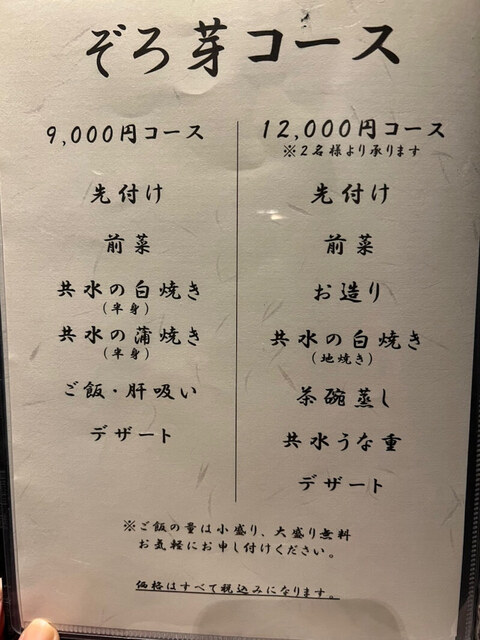 ぞろ芽コース
9,000円コース
先付け
前菜
共水の白焼き
(半身)
共水の蒲焼き
(半身)
ご飯・肝吸い
デザート
12,000円コース
※2名様より承ります
先付け
前菜
お造り
共水の白焼き
(地焼き)
茶碗蒸し
共水うな重
デザート
※ご飯の量は小盛り、大盛り無料
お気軽にお申し付けください。
価格はすべて税込みになります。